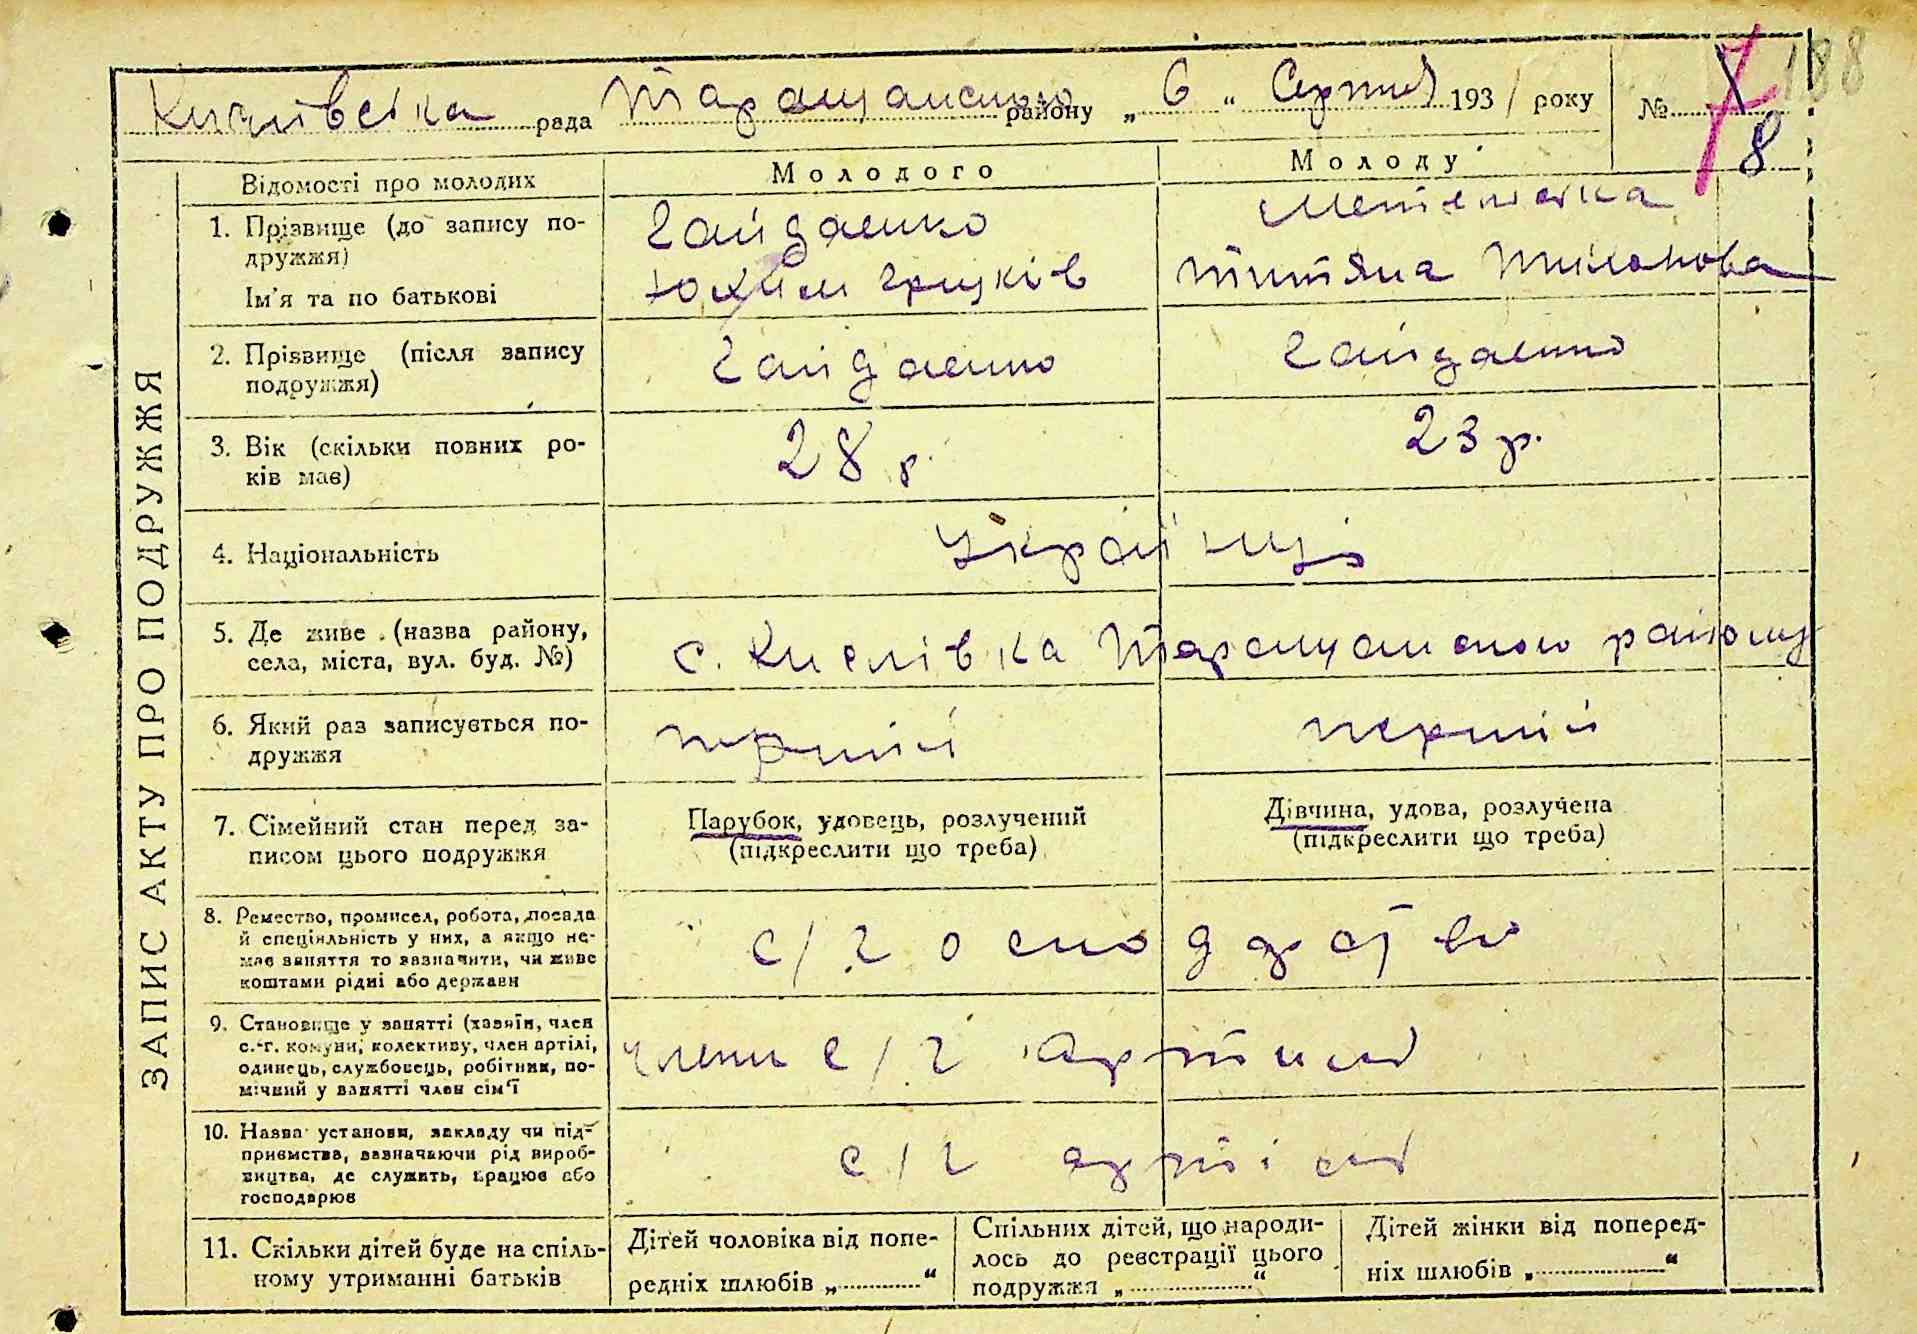 Кислівська рада Таращанського району „ 6 “ Серпня 1931 року № 8
188
ЗАПИС АКТУ ПРО ПОДРУЖЖЯ
Відомості про молодих
Молодого
Молоду
1. Прізвище (до запису по-
дружжя)
Ім'я та по батькові
Гайдаенко
Юхим Грицків
Титяна
2. Прізвище (після запису
подружжя)
Гайдаенко
Гайдаенко
3. Вік (скільки повних ро-
ків має)
28 р.
23 р.
4. Національність
Українці
5. Де живе (назва району,
села, міста, вул. буд. №)
с. Кислівка Таращанского району
6. Який раз записується по-
дружжя
перший
перший
7. Сімейний стан перед за-
писом цього подружжя
Парубок, удовець, розлучений
(підкреслити що треба)
Дівчина, удова, розлучена
(підкреслити що треба)
8. Ремество, промисел, робота, посада
й спеціяльність у них, а якщо не-
має заняття то зазначити, чи живе
коштами рідні або держави
с/г
9. Становище у занятті (хазяїн, член
с.-г. комуни, колективу, член артілі,
одинець, службовець, робітник, по-
мічний у занятті член сім'ї
члени с/г артили
10. Назва установи, закладу чи під-
приємства, зазначаючи рід вироб-
ництва, де служить, працює або
господарює
с/г артіли
11. Скільки дітей буде на спіль-
ному утриманні батьків
Дітей чоловіка від попе-
редніх шлюбів „ “
Спільних дітей, що народи-
лось до реєстрації цього
подружжя „ “
Дітей жінки від поперед-
ніх шлюбів „ “